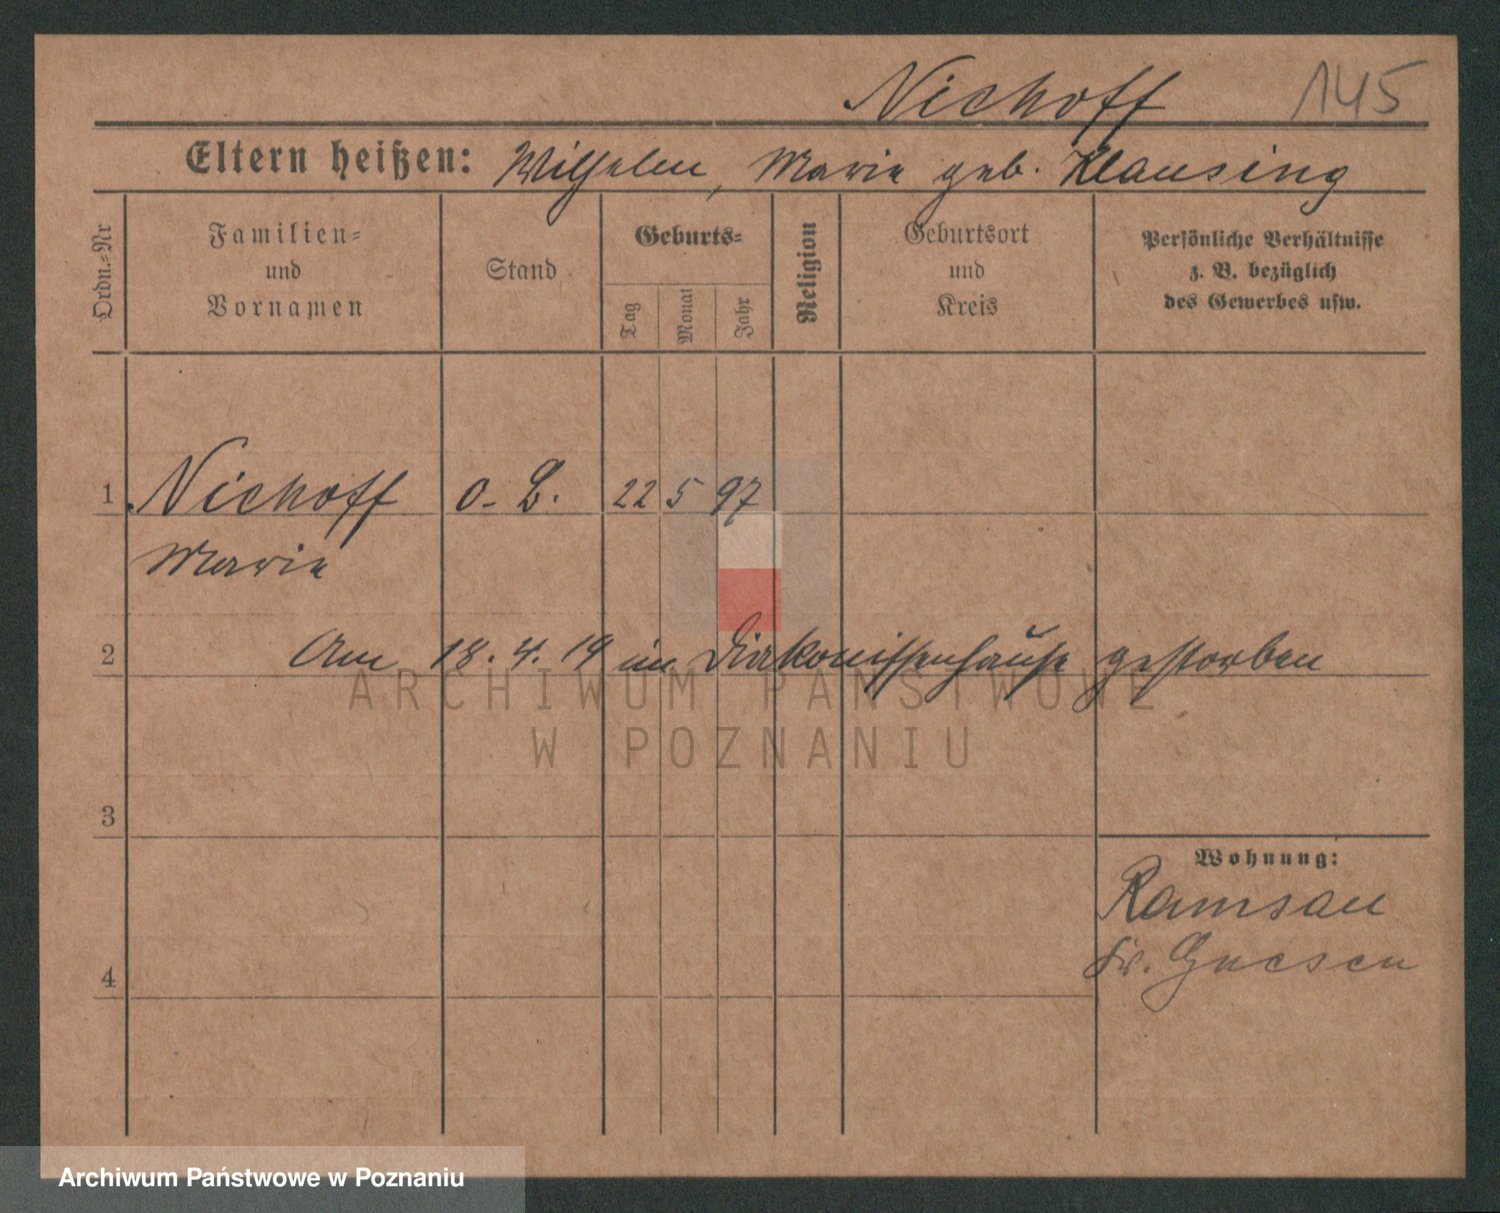 Niehoff 145
Eltern heißen: Wilhelm, Marie geb. Klausing
Ordn.-Nr
Familien-
und
Vornamen
Stand
Geburts-
Tag
Monat
Jahr
Religion
Geburtsort
und
Kreis
Persönliche Verhältnisse
z. B. bezüglich
des Gewerbes usw.
1 Niehoff o. B. 22 5 97
Marie
2 Am 18. 4. 19 im Diakonissenhause gestorben
ARCHIWUM PAŃSTWOWE
W POZNANIU
3
Wohnung:
Ramsau
Kr. Gnesen
4
Archiwum Państwowe w Poznaniu